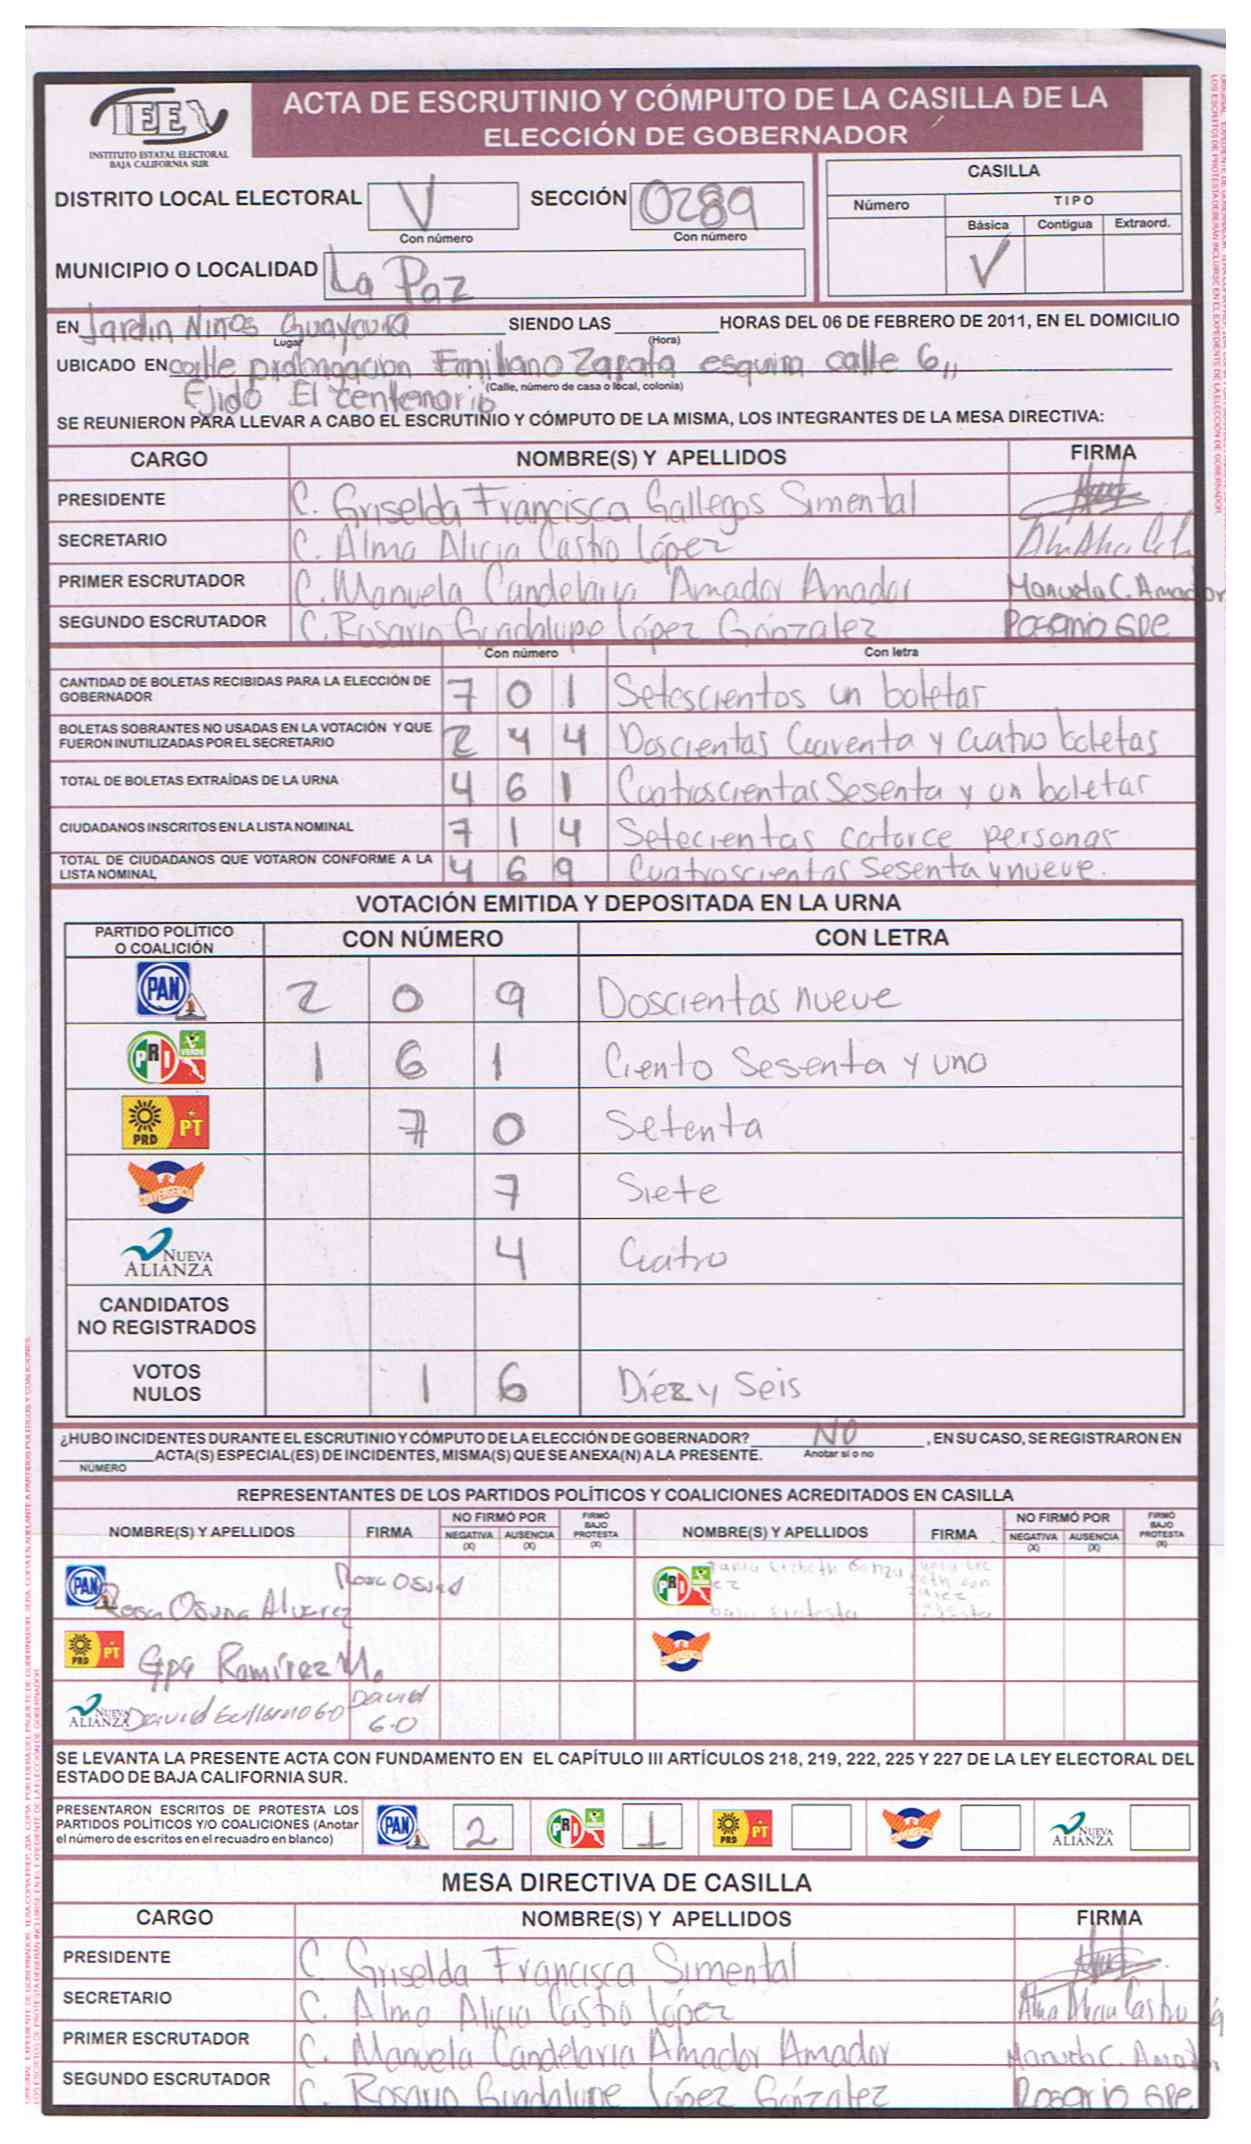 IEE
INSTITUTO ESTATAL ELECTORAL
BAJA CALIFORNIA SUR
ACTA DE ESCRUTINIO Y CÓMPUTO DE LA CASILLA DE LA
ELECCIÓN DE GOBERNADOR
DISTRITO LOCAL ELECTORAL V SECCIÓN 0289
Con número Con número
CASILLA
Número TIPO
Básica Contigua Extraord.
✓
MUNICIPIO O LOCALIDAD La Paz
EN Jardin Niños Guaycura SIENDO LAS HORAS DEL 06 DE FEBRERO DE 2011, EN EL DOMICILIO
Lugar (Hora)
UBICADO EN calle prolongacion Emiliano Zapata esquina calle 6,,
Ejido El centenario (Calle, número de casa o local, colonia)
SE REUNIERON PARA LLEVAR A CABO EL ESCRUTINIO Y CÓMPUTO DE LA MISMA, LOS INTEGRANTES DE LA MESA DIRECTIVA:
CARGO NOMBRE(S) Y APELLIDOS FIRMA
PRESIDENTE C. Griselda Francisca Gallegos Simental
SECRETARIO C. Alma Alicia Castro López
PRIMER ESCRUTADOR C. Manuela Candelaria Amador Amador Manuela C. Amador
SEGUNDO ESCRUTADOR C. Rosario Guadalupe López Gónzalez Rosario Gpe
Con número Con letra
CANTIDAD DE BOLETAS RECIBIDAS PARA LA ELECCIÓN DE
GOBERNADOR 7 0 1 Setescientos un boletas
BOLETAS SOBRANTES NO USADAS EN LA VOTACIÓN Y QUE
FUERON INUTILIZADAS POR EL SECRETARIO 2 4 4 Doscientas Cuaventa y cuatro boletas
TOTAL DE BOLETAS EXTRAÍDAS DE LA URNA 4 6 1 Cuatroscientas Sesenta y un boletas
CIUDADANOS INSCRITOS EN LA LISTA NOMINAL 7 1 4 Setecientas catorce personas
TOTAL DE CIUDADANOS QUE VOTARON CONFORME A LA
LISTA NOMINAL 4 6 9 Cuatroscientas Sesenta y nueve.
VOTACIÓN EMITIDA Y DEPOSITADA EN LA URNA
PARTIDO POLÍTICO
O COALICIÓN CON NÚMERO CON LETRA
PAN 2 0 9 Doscientas nueve
PRI VERDE 1 6 1 Ciento Sesenta y uno
PRD PT 7 0 Setenta
CONVERGENCIA 7 Siete
NUEVA
ALIANZA 4 Cuatro
CANDIDATOS
NO REGISTRADOS
VOTOS
NULOS 1 6 Díez y Seis
¿HUBO INCIDENTES DURANTE EL ESCRUTINIO Y CÓMPUTO DE LA ELECCIÓN DE GOBERNADOR? NO , EN SU CASO, SE REGISTRARON EN
ACTA(S) ESPECIAL(ES) DE INCIDENTES, MISMA(S) QUE SE ANEXA(N) A LA PRESENTE. Anotar si o no
NÚMERO
REPRESENTANTES DE LOS PARTIDOS POLÍTICOS Y COALICIONES ACREDITADOS EN CASILLA
NOMBRE(S) Y APELLIDOS FIRMA NO FIRMÓ POR NEGATIVA (X) AUSENCIA (X) FIRMÓ BAJO PROTESTA (X) NOMBRE(S) Y APELLIDOS FIRMA NO FIRMÓ POR NEGATIVA (X) AUSENCIA (X) FIRMÓ BAJO PROTESTA (X)
PAN Rosa Osuna Alvarez Rosa Osuna PRI
PRD PT Gpe Ramírez M.
NUEVA
ALIANZA David Guillermo G O David
G.O
SE LEVANTA LA PRESENTE ACTA CON FUNDAMENTO EN EL CAPÍTULO III ARTÍCULOS 218, 219, 222, 225 Y 227 DE LA LEY ELECTORAL DEL
ESTADO DE BAJA CALIFORNIA SUR.
PRESENTARON ESCRITOS DE PROTESTA LOS
PARTIDOS POLÍTICOS Y/O COALICIONES (Anotar
el número de escritos en el recuadro en blanco) PAN 2 PRI 1 PRD PT NUEVA ALIANZA
MESA DIRECTIVA DE CASILLA
CARGO NOMBRE(S) Y APELLIDOS FIRMA
PRESIDENTE C. Griselda Francisca Simental
SECRETARIO C. Alma Alicia Castro López
PRIMER ESCRUTADOR C. Manuela Candelaria Amador Amador Manuela C. Amador
SEGUNDO ESCRUTADOR C. Rosario Guadalupe López Gónzalez Rosario Gpe